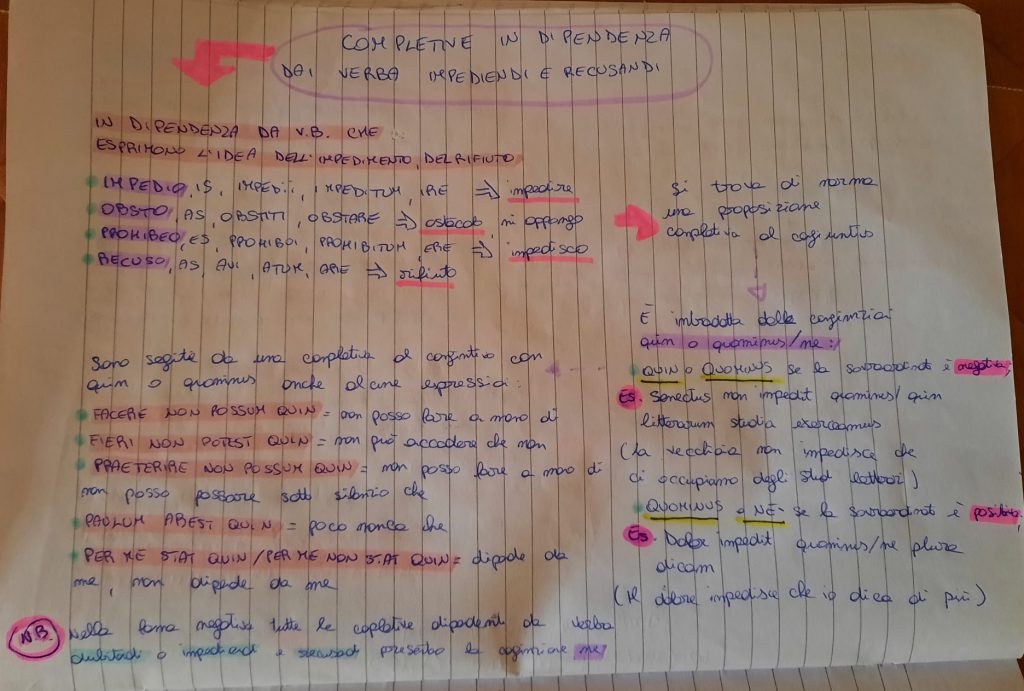 COMPLETIVE IN DIPENDENZA
DAI VERBA IMPEDIENDI E RECUSANDI
IN DIPENDENZA DA V.B. CHE
ESPRIMONO L'IDEA DELL'IMPEDIMENTO, DEL RIFIUTO
IMPEDIO, IS, IMPEDII, IMPEDITUM, IRE => impedire
OBSTO, AS, OBSTITI, OBSTARE => ostacolo, mi oppongo
PROHIBEO, ES, PROHIBUI, PROHIBITUM, ERE => impedisco
RECUSO, AS, AVI, ATUM, ARE => rifiuto
Si trova di norma
una proposizione
completiva al congiuntivo
È introdotta dalle congiunzioni
quin o quominus/ne:
QUIN o QUOMINUS se la sovraordinata è negativa;
Es. Senectus non impedit quominus/quin
litterarum studia exerceamus
(La vecchiaia non impedisce che
ci occupiamo degli studi letterari)
QUOMINUS o NE- se la sovraordinata è positiva,
Es. Dolor impedit quominus/ne plura
dicam
(Il dolore impedisce che io dica di più)
Sono seguite da una completiva al congiuntivo con
quin o quominus anche alcune espressioni:
FACERE NON POSSUM QUIN = non posso fare a meno di
FIERI NON POTEST QUIN = non può accadere che non
PRAETERIRE NON POSSUM QUIN = non posso fare a meno di
non posso passare sotto silenzio che
PAULUM ABEST QUIN = poco manca che
PER ME STAT QUIN/PER ME NON STAT QUIN = dipende da
me, non dipende da me
N.B. Nella forma negativa tutte le completive dipendenti da verba
dubitandi o impediendi e recusandi presentano la congiunzione ne